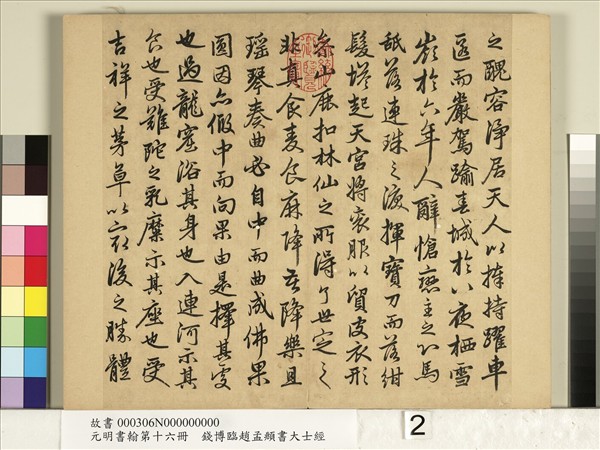 之醜容淨居天人以捧持躍車
匿而嚴駕踰春城於八夜栖雪
嶺於六年人辭愴戀主之心馬
舐落連珠之淚揮寶刀而落紺
髮塔起天宮將袞服以貿皮衣形
參山鹿扣林仙之所得了世定之
非真食麥食麻降苦降樂且
瑤琴奏曲必自中而曲成佛果
圓因亦假中而向果由是擇其處
也過龍窟浴其身也入連河示其
食也受難陀之乳糜示其座也受
吉祥之茅草以最後之勝體
故書 000306N000000000
元明書翰第十六冊 錢博臨趙孟頫書大士經
2